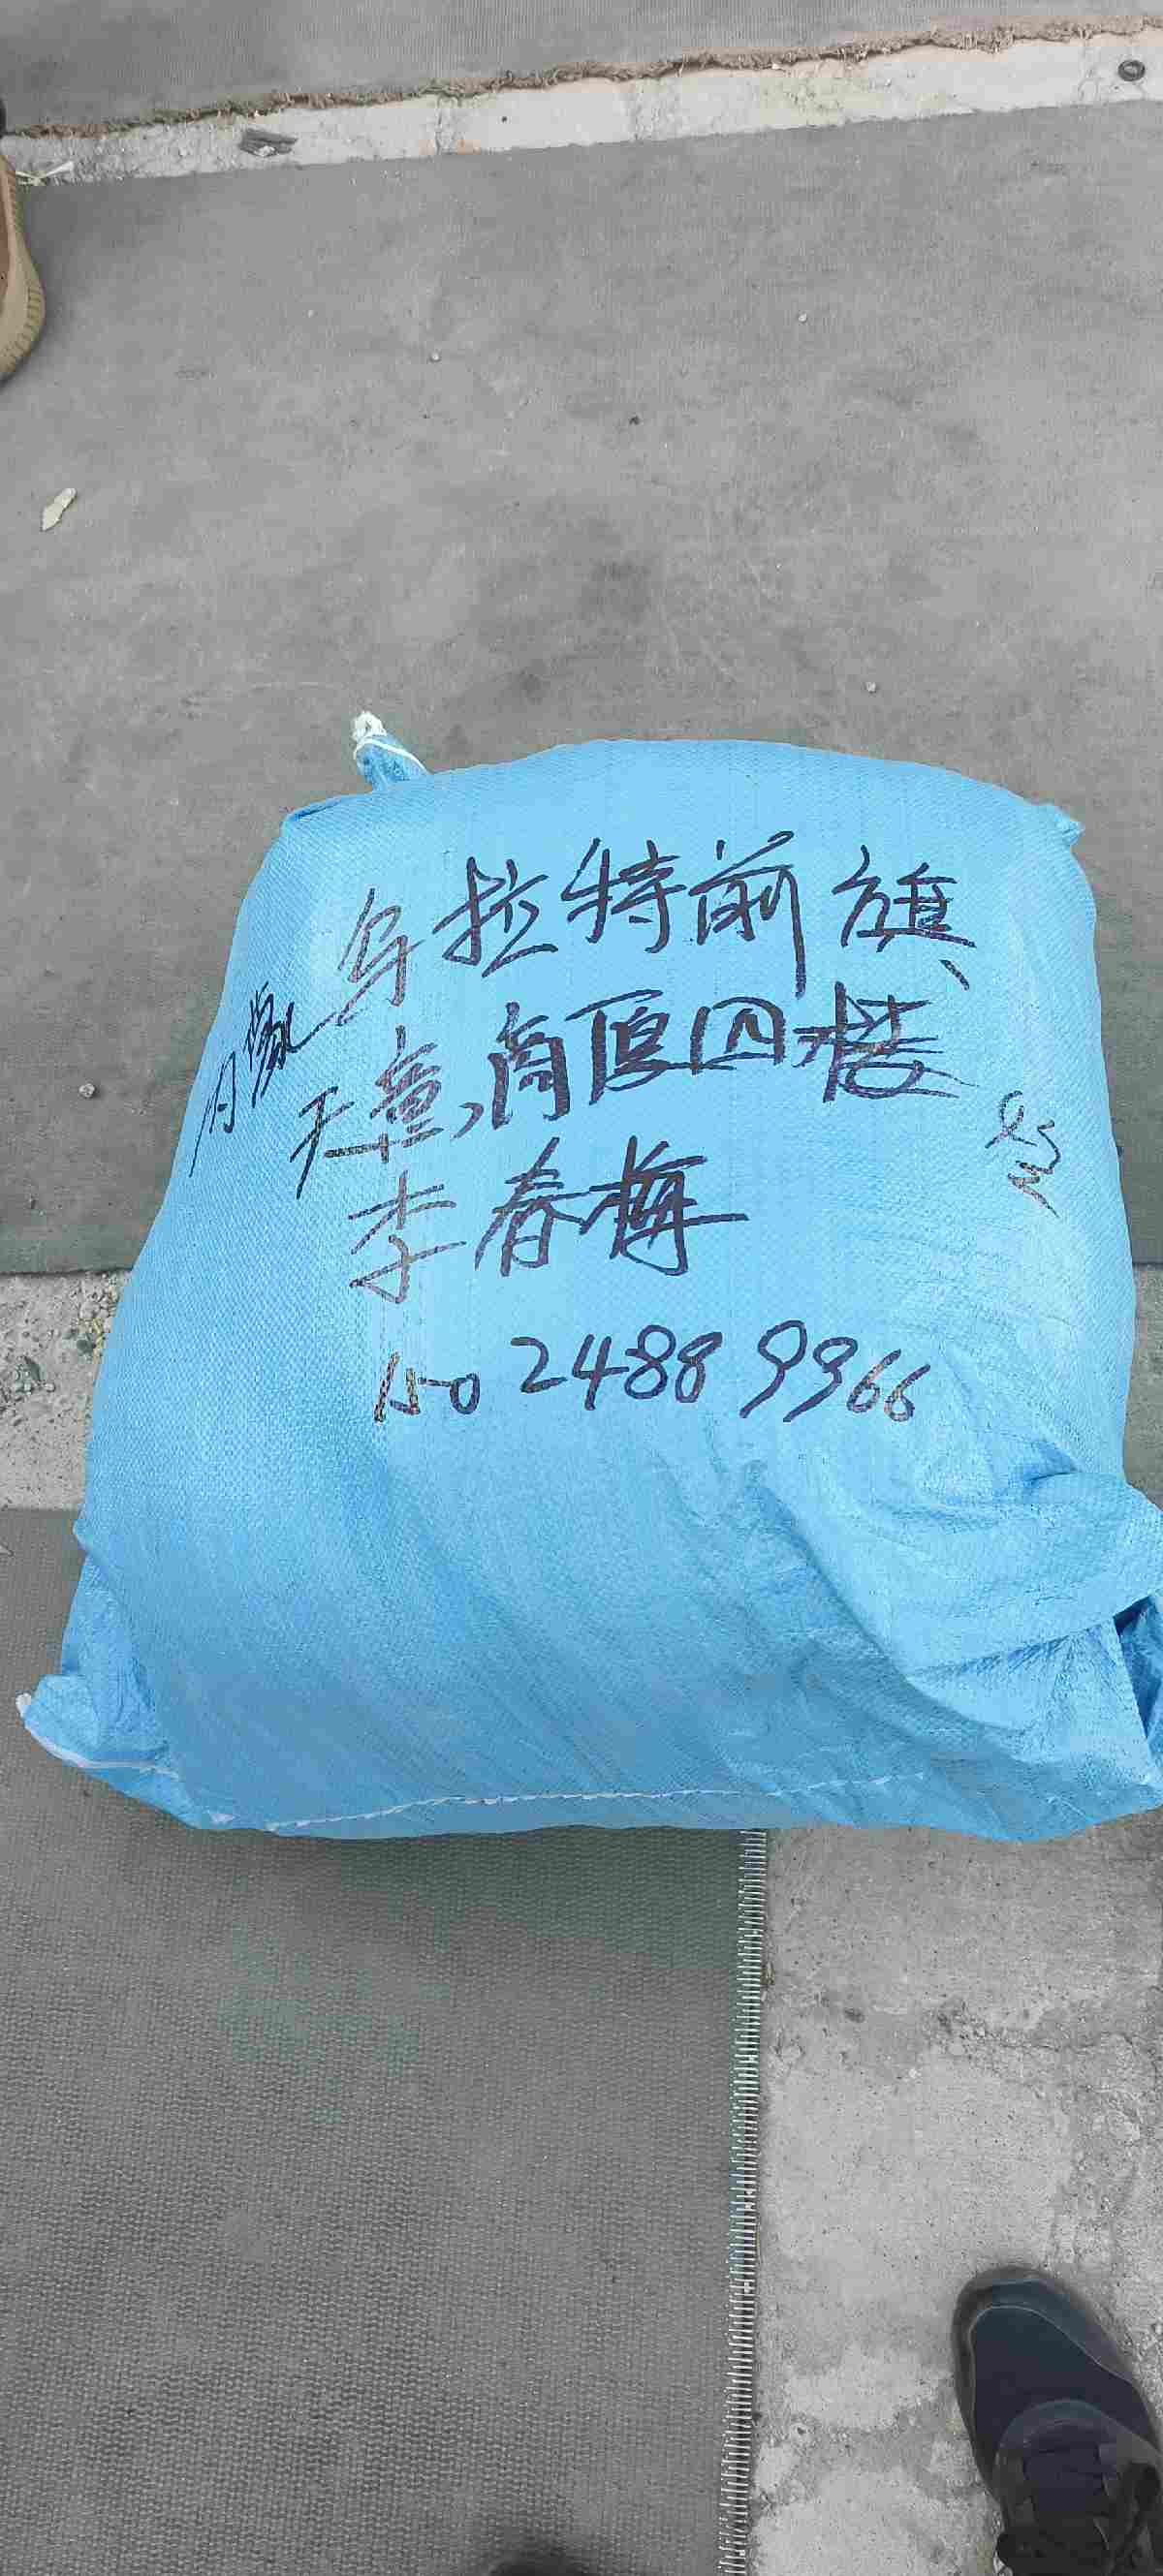 内蒙乌拉特前旗、
天童,商厦四楼
李春梅
150 2488 9366